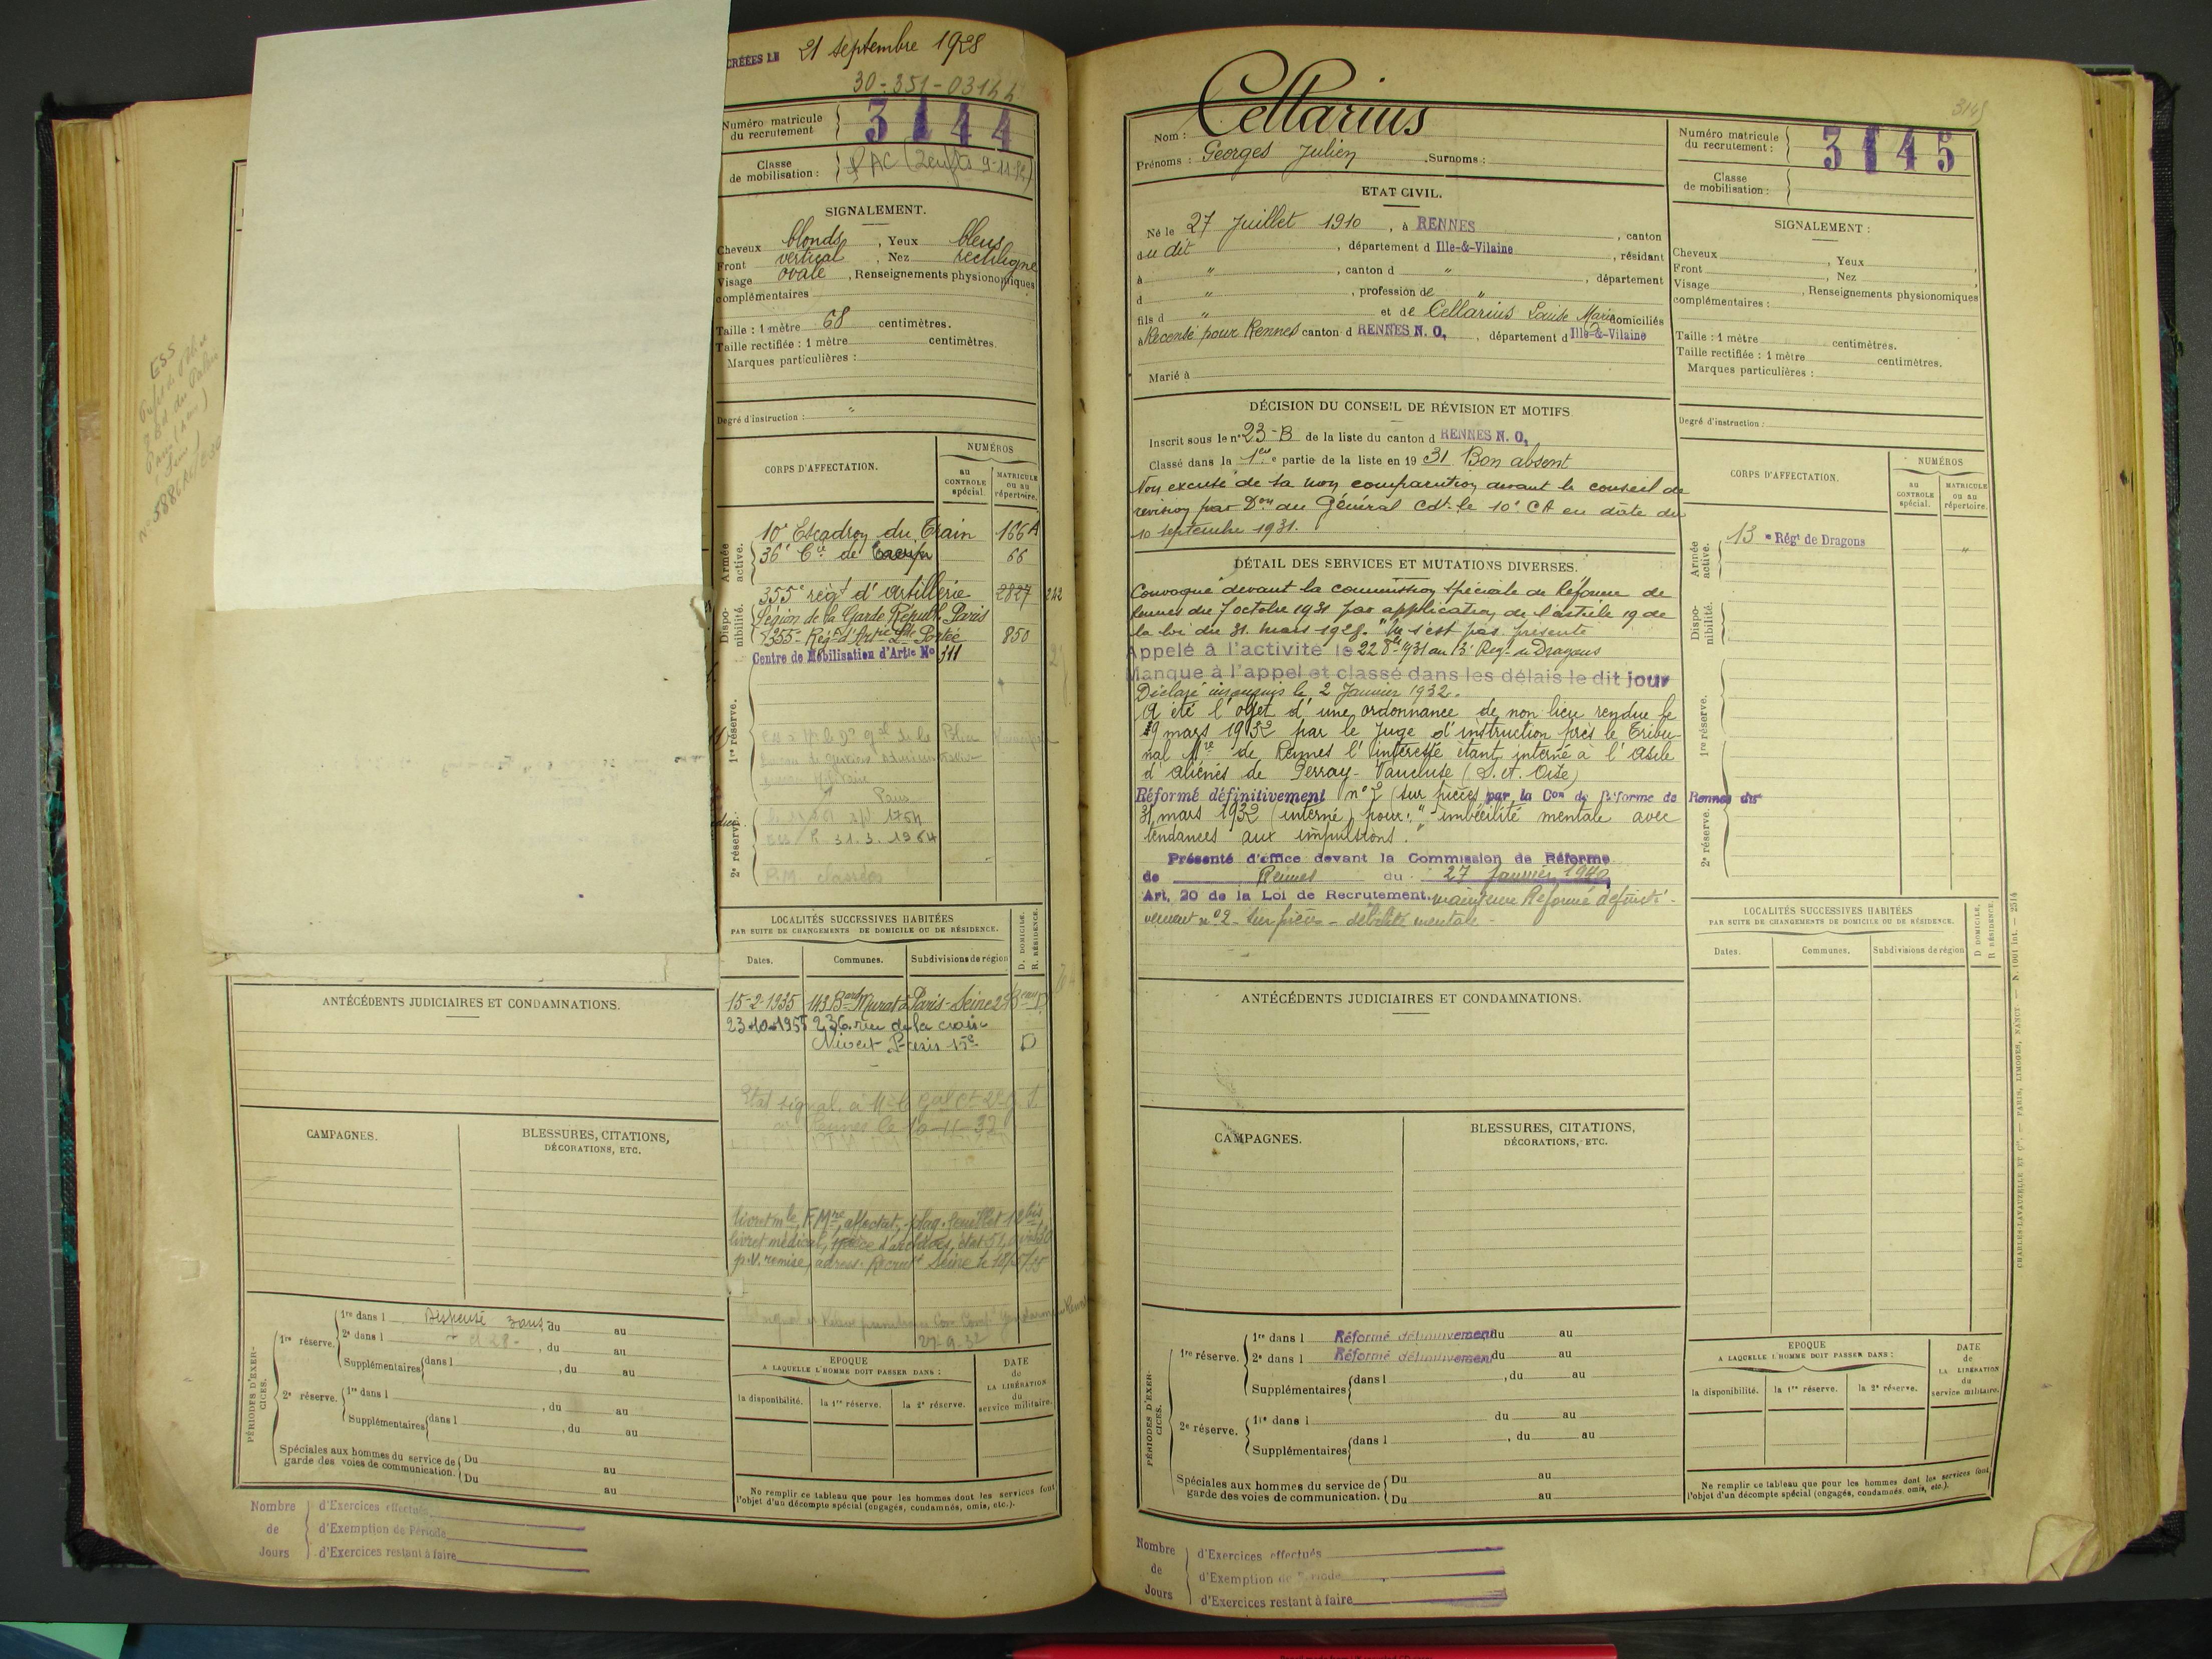 CRÉÉES LE 21 septembre 1928
30-351-03144
Numéro matricule du recrutement 3144
Classe de mobilisation :
SIGNALEMENT.
Cheveux blonds, Yeux bleus
Front vertical, Nez rectiligne
Visage ovale, Renseignements physionomiques
complémentaires
Taille : 1 mètre 68 centimètres.
Taille rectifiée : 1 mètre centimètres.
Marques particulières :
Degré d'instruction : "
CORPS D'AFFECTATION.
NUMÉROS
au CONTROLE spécial.
MATRICULE ou au répertoire.
Armée active.
10e Escadron du Train 166 A
36e Cie de 66
Disponibilité.
355e régt d'artillerie 2827 242
Légion de la Garde Républ. Paris
355e Régt d'Artie Lde Portée 850
Centre de Mobilisation d'Artie No 311
1re réserve.
Paris
1754
31.3.1964
2e réserve.
P.M. classées
LOCALITÉS SUCCESSIVES HABITÉES
PAR SUITE DE CHANGEMENTS DE DOMICILE OU DE RÉSIDENCE.
D. DOMICILE.
R. RÉSIDENCE.
Dates. Communes. Subdivisions de région
15-2-1935 143 Bard Murat à Paris-Seine 2e Beau D
23-10-1955 236 rue de la croix
Nivert Paris 15e D
Rennes le 10-11-32
livret mle, F. Mre, affectat., plaq. feuillet 12 bis
livret médical, pièce d'archives, état 51,
p.v. remise, adres. Recrutt Seine le
27-9-32
ANTÉCÉDENTS JUDICIAIRES ET CONDAMNATIONS.
CAMPAGNES.
BLESSURES, CITATIONS,
DÉCORATIONS, ETC.
PÉRIODES D'EXERCICES.
1re réserve.
1re dans l Dispensé 3 ans, du au
2e dans l , du au
Supplémentaires dans l , du au
2e réserve.
1re dans l , du au
Supplémentaires dans l , du au
Spéciales aux hommes du service de garde des voies de communication.
Du au
Du au
EPOQUE
A LAQUELLE L'HOMME DOIT PASSER DANS :
la disponibilité. la 1re réserve. la 2e réserve.
DATE de LA LIBÉRATION du service militaire.
Ne remplir ce tableau que pour les hommes dont les services font
l'objet d'un décompte spécial (engagés, condamnés, omis, etc.).
Nombre de Jours
d'Exercices effectués
d'Exemption de Période
d'Exercices restant à faire
3145
Nom : Cellarius
Prénoms : Georges Julien Surnoms :
Numéro matricule du recrutement : 3145
Classe de mobilisation :
ETAT CIVIL.
Né le 27 Juillet 1910, à RENNES, canton
du dit, département d Ille-&-Vilaine, résidant
à ", canton d ", département
d ", profession de "
fils d " et de Cellarius Louise Marie domiciliés
à Recensé pour Rennes canton d RENNES N. O., département d Ille-&-Vilaine
Marié à
SIGNALEMENT :
Cheveux, Yeux,
Front, Nez
Visage, Renseignements physionomiques
complémentaires :
Taille : 1 mètre centimètres.
Taille rectifiée : 1 mètre centimètres.
Marques particulières :
Degré d'instruction :
DÉCISION DU CONSEIL DE RÉVISION ET MOTIFS
Inscrit sous le n° 23-B de la liste du canton d RENNES N. O.
Classé dans la 1ere partie de la liste en 1931 Bon absent
Non excusé de sa non comparution devant le conseil de
revision par Don du Général Cdt le 10e CA en date du
10 septembre 1931.
DÉTAIL DES SERVICES ET MUTATIONS DIVERSES.
Convoqué devant la commission spéciale de réforme de
Rennes du 7 octobre 1931 par application de l'article 19 de
la loi du 31 mars 1928. "Ne s'est pas présenté
Appelé à l'activité le 22 8bre 1931 au 13e Régt de Dragons
Manque à l'appel et classé dans les délais le dit jour
Déclaré insoumis le 2 Janvier 1932.
A été l'objet d'une ordonnance de non lieu rendue le
19 mars 1932 par le Juge d'instruction près le Tribu-
nal Mre de Rennes l'intéressé étant interné à l'asile
d'aliénés de Perray-Vaucluse (S. et. Oise)
Réformé définitivement n°2 (sur pièces par la Con de Réforme de Rennes du
31 mars 1932 (interné) pour : "imbécilité mentale avec
tendances aux impulsions."
Présenté d'office devant la Commission de Réforme
de Rennes du 27 Janvier 1940
Art. 20 de la Loi de Recrutement. maintenu Réformé définiti-
vement n°2 - sur pièces - débilité mentale -
CORPS D'AFFECTATION.
NUMÉROS
au CONTROLE spécial.
MATRICULE ou au répertoire.
Armée active.
13e Régt de Dragons "
Disponibilité.
1re réserve.
2e réserve.
LOCALITÉS SUCCESSIVES HABITÉES
PAR SUITE DE CHANGEMENTS DE DOMICILE OU DE RÉSIDENCE.
D. DOMICILE.
R. RÉSIDENCE.
Dates. Communes. Subdivisions de région
ANTÉCÉDENTS JUDICIAIRES ET CONDAMNATIONS.
CAMPAGNES.
BLESSURES, CITATIONS,
DÉCORATIONS, ETC.
PÉRIODES D'EXERCICES.
1re réserve.
1re dans l Réformé définitivement du au
2e dans l Réformé définitivement du au
Supplémentaires dans l , du au
2e réserve.
1re dans l du au
Supplémentaires dans l , du au
Spéciales aux hommes du service de garde des voies de communication.
Du au
Du au
EPOQUE
A LAQUELLE L'HOMME DOIT PASSER DANS :
la disponibilité. la 1re réserve. la 2e réserve.
DATE de LA LIBÉRATION du service militaire.
Ne remplir ce tableau que pour les hommes dont les services font
l'objet d'un décompte spécial (engagés, condamnés, omis, etc.).
Nombre de Jours
d'Exercices effectués
d'Exemption de Période
d'Exercices restant à faire
CHARLES-LAVAUZELLE ET Cie. — PARIS, LIMOGES, NANCY — N. 1001 int. — 2514